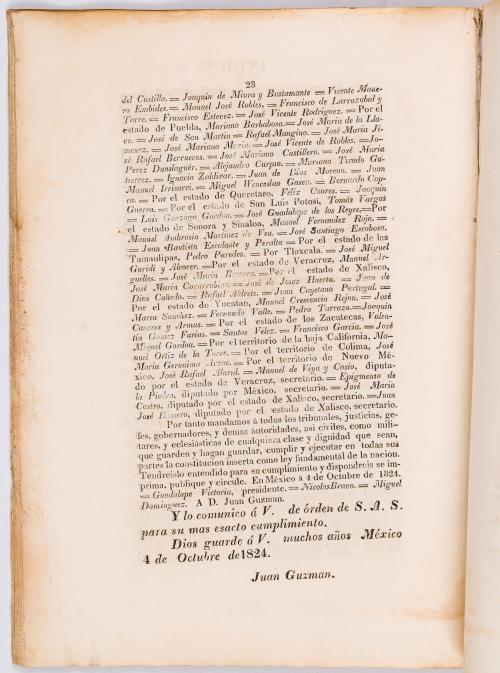 23
del Castillo. = Joaquin de Miura y Bustamante = Vicente Mane-
ro Embides. = Manuel José Robles. = Francisco de Larrazabal y
Torre. = Francisco Estevez. = José Vicente Rodriguez. = Por el
estado de Puebla, Mariano Barbabosa. = José Maria de la Lla-
ve. = José de San Martin = Rafael Mangino. = José Maria Ji-
menez. = José Mariano Marin. = José Vicente de Robles. = Jo-
sé Rafael Berruecos. = José Mariano Castillero. = José Maria
Perez Dunslaguér. = Alejandro Carpio. = Mariano Tirado Gu-
tierrez. = Ignacio Zaldivar. = Juan de Dios Moreno. = Juan
Manuel Irrisarri. = Miguel Wenceslao Gasca. = Bernardo Cop-
ca. = Por el estado de Queretaro, Felix Osores. = Joaquin
Guerra. = Por el estado de San Luis Potosi, Tomás Vargas
= Luis Gonzaga Gordoa. = José Guadalupe de los Reyes. = Por
el estado de Sonora y Sinaloa, Manuel Fernandez Rojo. =
Manuel Ambrosio Martinez de Vea. = José Santiago Escobosa.
= Juan Bautista Escalante y Peralta = Por el estado de las
Tamaulipas, Pedro Paredes. = Por Tlaxcala. = José Miguel
Guridi y Alcocer. = Por el estado de Veracruz, Manuel Ar-
guelles. = José Maria Becerra. = Por el estado de Xalisco,
José Maria Covarrubias. = José de Jesus Huerta. = Juan de
Dios Cañedo. = Rafael Aldrete. = Juan Cayetano Portugal. =
Por el estado de Yucatan, Manuel Crescencio Rejon. = José
Maria Sanchez. = Fernando Valle. = Pedro Tarrazo. = Joaquin
Casares y Armas. = Por el estado de los Zacatecas, Valen-
tin Gomez Farias. = Santos Velez. = Francisco Garcia. = José
Miguel Gordoa. = Por el territorio de la baja California, Ma-
nuel Ortiz de la Torre. = Por el territorio de Colima, José
Maria Geronimo Arzac. = Por el territorio de Nuevo Mé-
xico, José Rafael Alarid. = Manuel de Viya y Cosio, diputa-
do por el estado de Veracruz, secretario. = Epigmenio de
la Piedra, diputado por México, secretario. = José Maria
Castro, diputado por el estado de Xalisco, secretario. = Juan
José Romero, diputado por el estado de Xalisco, secretario.
Por tanto mandamos á todos los tribunales, justicias, ge-
fes, gobernadores, y demas autoridades, asi civiles, como mili-
tares, y eclesiásticas de cualquiera clase y dignidad que sean,
que guarden y hagan guardar, cumplir y ejecutar en todas sus
partes la constitucion inserta como ley fundamental de la nacion.
Tendreislo entendido para su cumplimiento y dispondreis se im-
prima, publique y circule. En México á 4 de Octubre de 1824.
= Guadalupe Victoria, presidente. = Nicolas Bravo. = Miguel
Dominguez. A D. Juan Guzman.
Y lo comunico á V. de órden de S. A. S.
para su mas esacto cumplimiento.
Dios guarde á V. muchos años México
4 de Octubre de 1824.
Juan Guzman.